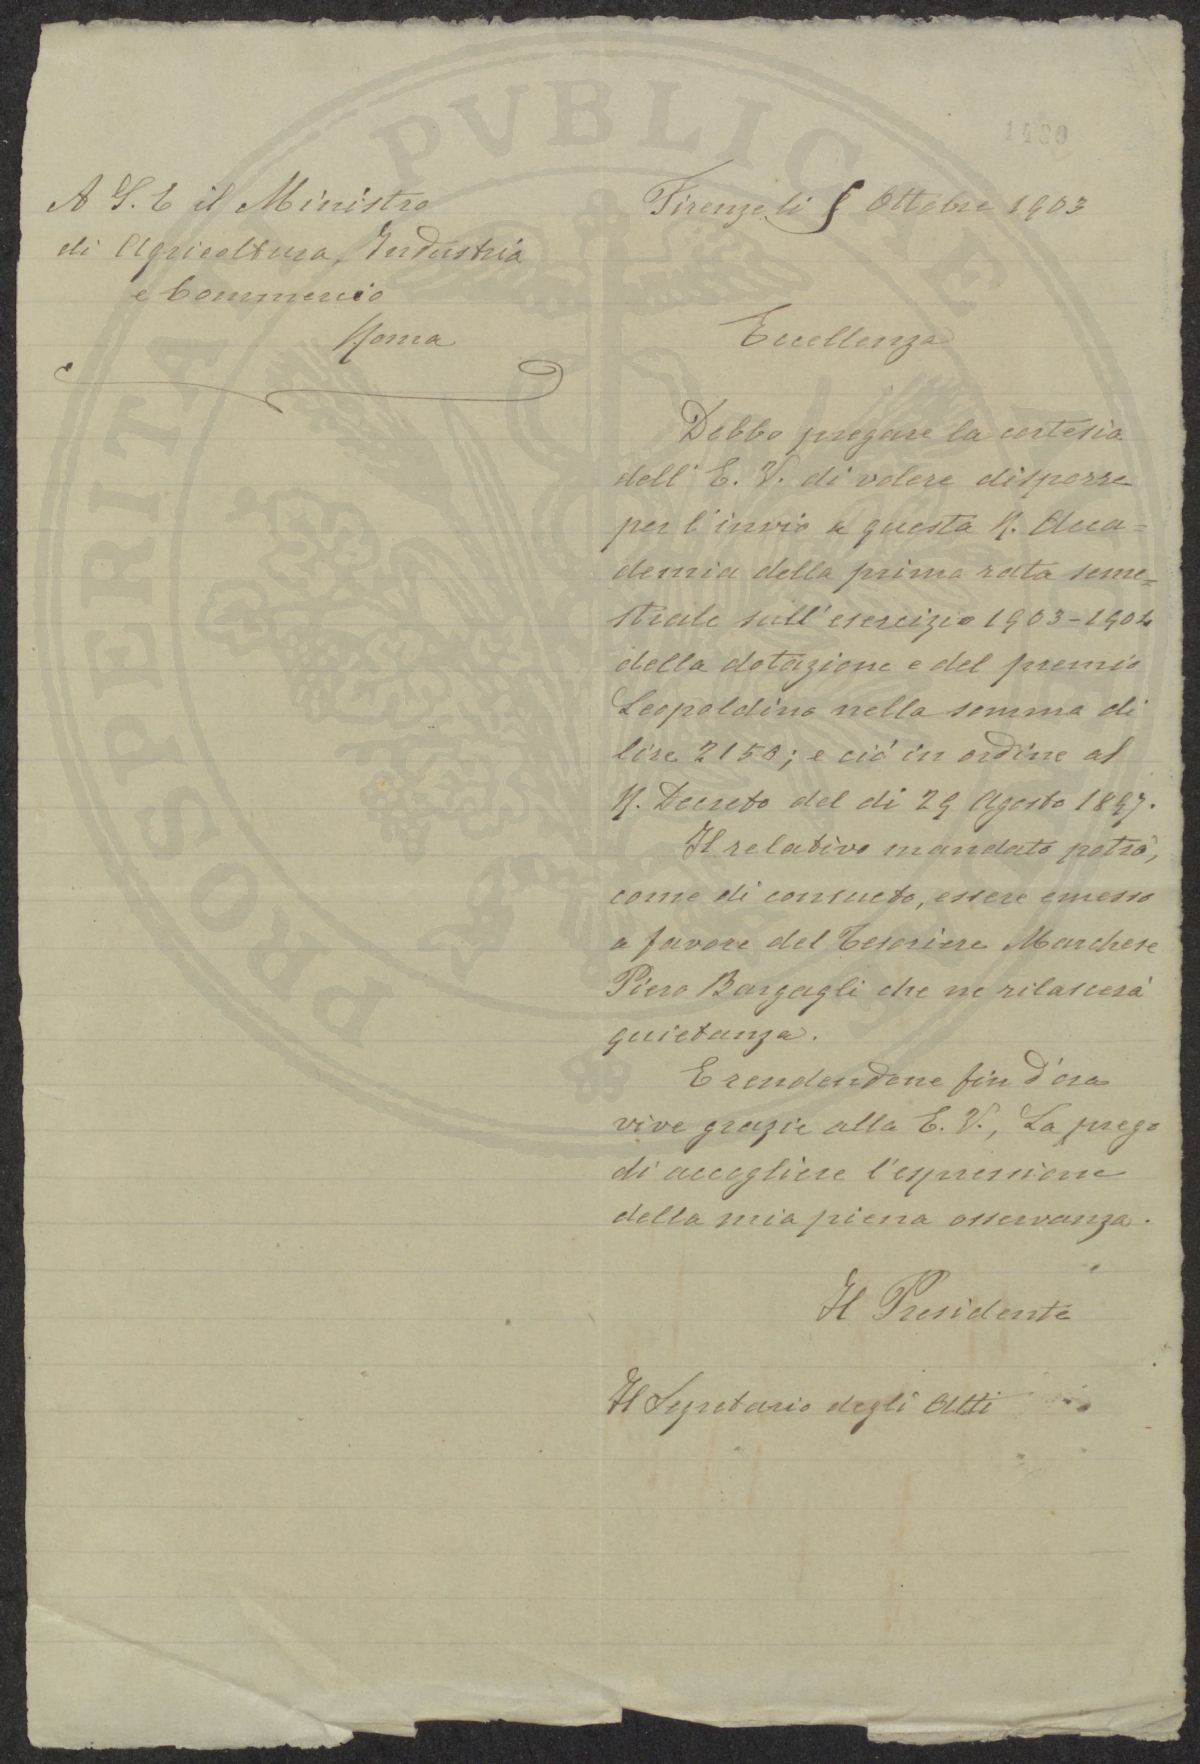 1400
A S. E il Ministro
di Agricoltura, Industria
e Commercio
Roma
Firenze li 5 Ottobre 1903
Eccellenza
Debbo pregare la cortesia
dell' E. V. di volere disporre
per l'invio a questa R. Acca=
demia della prima rata seme=
strale sull'esercizio 1903-1904
della dotazione e del premio
Leopoldino nella somma di
lire 2150; e ciò in ordine al
R. Decreto del di 29 Agosto 1897.
Il relativo mandato potrà,
come di consueto, essere emesso
a favore del Tesoriere Marchese
Piero Bargagli che ne rilascerà
quietanza.
E rendendone fin d'ora
vive grazie alla E. V., La prego
di accogliere l'espressione
della mia piena osservanza.
Il Presidente
Il Segretario degli Atti
PROSPERITATI PUBLICAE AUGENDAE